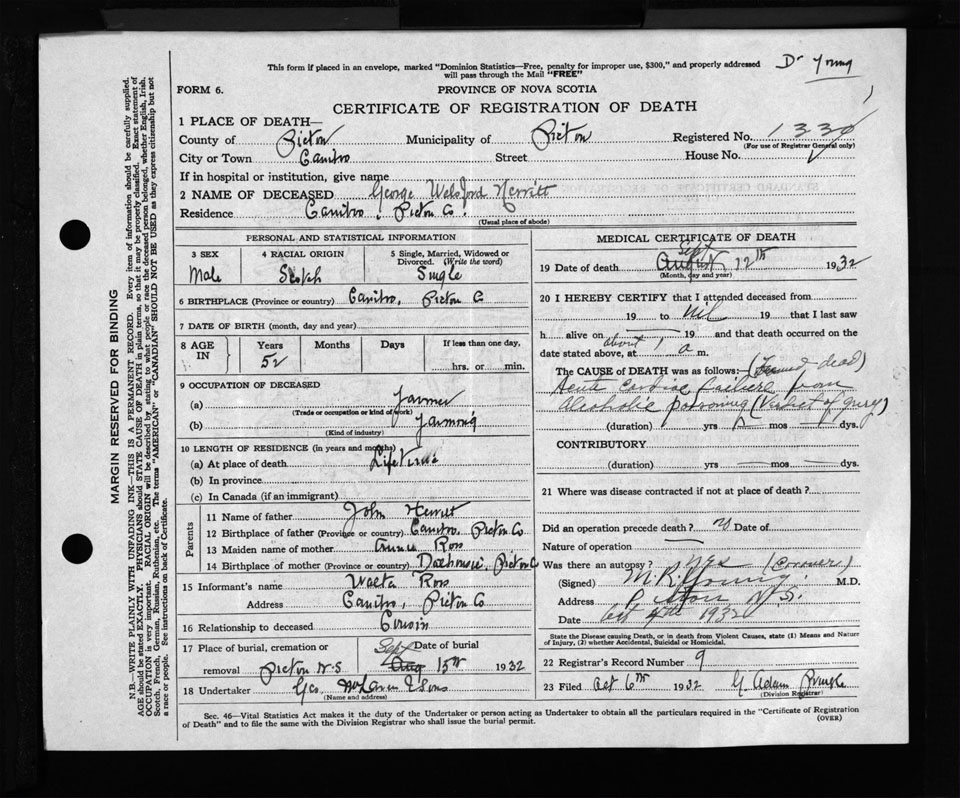 This form if placed in an envelope, marked "Dominion Statistics—Free, penalty for improper use, $300," and properly addressed
will pass through the Mail "FREE"
Dr Young
FORM 6.
PROVINCE OF NOVA SCOTIA
CERTIFICATE OF REGISTRATION OF DEATH
1 PLACE OF DEATH—
County of Pictou Municipality of Pictou Registered No. 1330
(For use of Registrar General only)
City or Town Caribou Street House No.
If in hospital or institution, give name
2 NAME OF DECEASED George Welsford
Residence Caribou, Pictou Co.
(Usual place of abode)
PERSONAL AND STATISTICAL INFORMATION
3 SEX Male
4 RACIAL ORIGIN Scotch
5 Single, Married, Widowed or Divorced. (Write the word) Single
6 BIRTHPLACE (Province or country) Caribou, Pictou Co
7 DATE OF BIRTH (month, day and year)
8 AGE IN Years 52 Months Days If less than one day, hrs. or min.
9 OCCUPATION OF DECEASED
(a) Farmer
(Trade or occupation or kind of work)
(b) Farming
(Kind of industry)
10 LENGTH OF RESIDENCE (in years and months)
(a) At place of death Life time
(b) In province
(c) In Canada (if an immigrant)
Parents
11 Name of father John
12 Birthplace of father (Province or country) Caribou, Pictou Co
13 Maiden name of mother Annie Ross
14 Birthplace of mother (Province or country) Dalhousie, Pictou Co
15 Informant's name Ross
Address Caribou, Pictou Co
16 Relationship to deceased Cousin
17 Place of burial, cremation or removal Pictou N.S Date of burial Sept Aug 15th 1932
18 Undertaker Geo. McLaren & Sons
(Name and address)
MEDICAL CERTIFICATE OF DEATH
19 Date of death Sept August 12th 1932
(Month, day and year)
20 I HEREBY CERTIFY that I attended deceased from
19 to nil 19 that I last saw
h alive on 19 and that death occurred on the
date stated above, at about 1 a m.
The CAUSE of DEATH was as follows: (Found dead)
Acute Cardiac failure from
alcoholic poisoning (Verdict of jury)
(duration) yrs mos dys.
CONTRIBUTORY
(duration) yrs mos dys.
21 Where was disease contracted if not at place of death?
Did an operation precede death? Date of
Nature of operation
Was there an autopsy? yes (Coroner)
(Signed) M.R. Young. M.D.
Address Pictou N.S.
Date Oct 1932
State the Disease causing Death, or in death from Violent Causes, state (1) Means and Nature
of Injury, (2) whether Accidental, Suicidal or Homicidal.
22 Registrar's Record Number 9
23 Filed Oct 6th 1932 G. Adam
(Division Registrar)
Sec. 46—Vital Statistics Act makes it the duty of the Undertaker or person acting as Undertaker to obtain all the particulars required in the "Certificate of Registration
of Death" and to file the same with the Division Registrar who shall issue the burial permit.
(OVER)
MARGIN RESERVED FOR BINDING
N.B.—WRITE PLAINLY WITH UNFADING INK—THIS IS A PERMANENT RECORD. Every item of information should be carefully supplied.
AGE should be stated EXACTLY. PHYSICIANS should STATE CAUSE OF DEATH in plain terms, so that it may be properly classified. Exact statement of
OCCUPATION is very important. RACIAL ORIGIN will be described by stating to what people or race the deceased person belonged, whether English, Irish,
Scotch, French, German, Russian, Ruthenian, etc. The terms "AMERICAN" or "CANADIAN" SHOULD NOT BE USED as they express citizenship but not
a race or people. See instructions on back of Certificate.